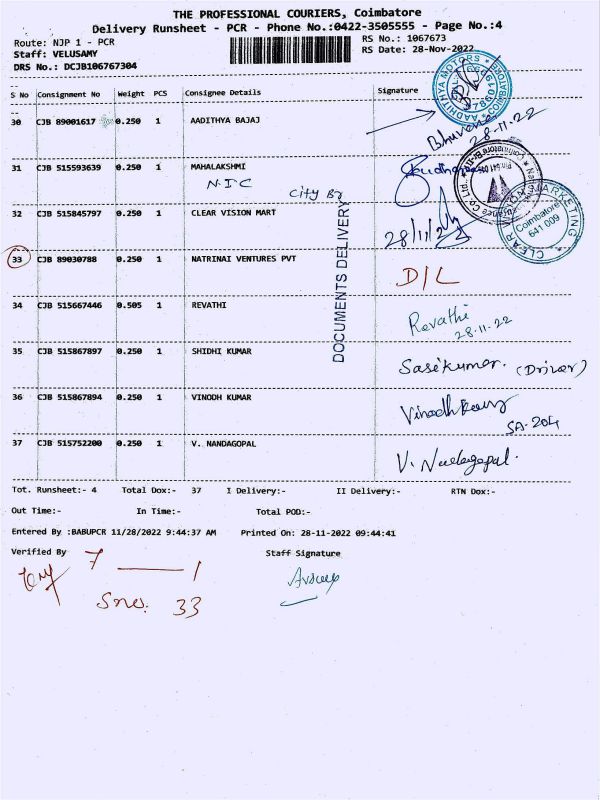 THE PROFESSIONAL COURIERS, Coimbatore
Delivery Runsheet - PCR - Phone No.:0422-3505555 - Page No.:4
Route: NJP 1 - PCR RS No.: 1067673
Staff: VELUSAMY RS Date: 28-Nov-2022
DRS No.: DCJB106767304
S No Consignment No Weight PCS Consignee Details Signature
30 CJB 89001617 0.250 1 AADITHYA BAJAJ
AADHITHYA MOTORS
28-11-22
31 CJB 515593639 0.250 1 MAHALAKSHMI
N.I.C
City By
32 CJB 515845797 0.250 1 CLEAR VISION MART
28/11/22
CLEAR VISION MARKETING
Coimbatore
641 009
DOCUMENTS DELIVERY
33 CJB 89030788 0.250 1 NATRINAI VENTURES PVT D/L
34 CJB 515667446 0.505 1 REVATHI Revathi
28.11.22
35 CJB 515867897 0.250 1 SHIDHI KUMAR Sasikumar. (Driver)
36 CJB 515867894 0.250 1 VINODH KUMAR
SA-204
37 CJB 515752200 0.250 1 V. NANDAGOPAL
Tot. Runsheet:- 4 Total Dox:- 37 I Delivery:- II Delivery:- RTN Dox:-
Out Time:- In Time:- Total POD:-
Entered By :BABUPCR 11/28/2022 9:44:37 AM Printed On: 28-11-2022 09:44:41
Verified By Staff Signature
7 — 1
Sno. 33